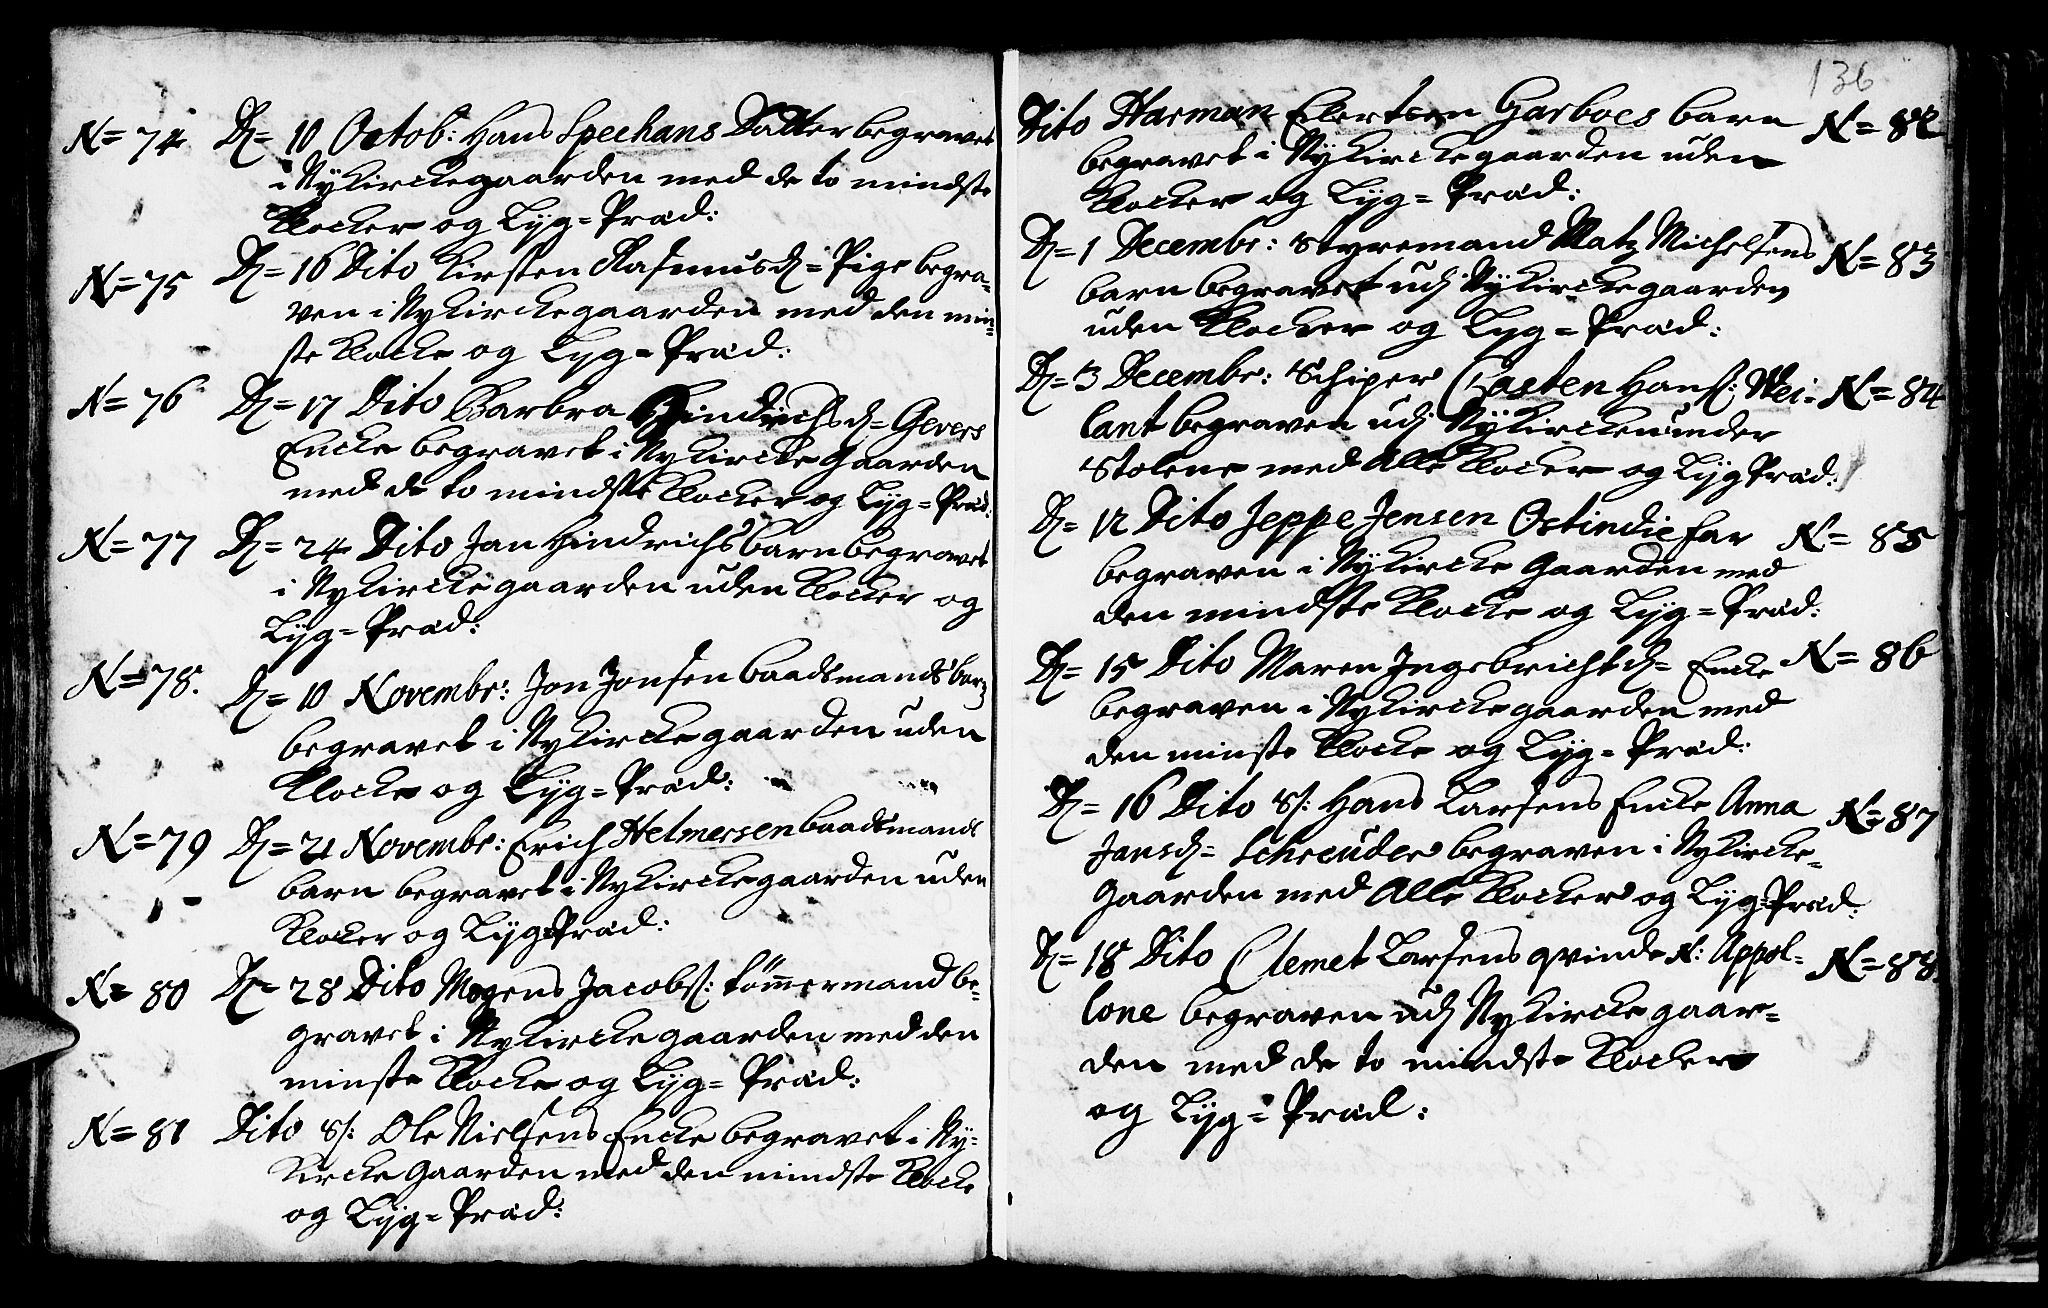 N= 74 D= 10 Octob: Hans Spechans Datter begravet
i Nykirckegaarden med de to mindste
Klocker og Lyg=Præd:
N= 75 D= 16 Dito Kirsten Rasmusd= Pige begra=
ven i Nykirckegaarden med den min=
ste Klocke og Lyg=Præd:
N= 76 D= 17 Dito Barbra Hindrichsd= Gevers
Encke begravet i Nykircke Gaarden
med de to mindste Klocker og Lyg=Præd:
N= 77 D= 24 Dito Jan Hindrichs barn begravet
i Nykirckegaarden uden Klocker og
Lyg=Præd:
N= 78. D= 10 Novembr: Jon Jonsen baadsmands barn
begravet i Nykirckegaarden uden
Klocke og Lyg=Præd:
N= 79 D= 21 Novembr: Erich Helmersen baadsmands
barn begravet i Nykirckegaarden uden
Klocker og Lyg=Præd:
N= 80 D= 28 Dito Mogens Jacobs: tömmermand be=
gravet i Nykirckegaarden med den
minste Klocke og Lyg=Præd:
N= 81 Dito S: Ole Nielsens Encke begravet i Ny=
Kircke Gaarden med den mindste Klocke
og Lyg=Præd:
136
Dito Harman Elertsen Garboes barn N= 82
begravet i Nykirckegaarden uden
Klocker og Lyg=Præd:
D= 1 Decembr: Styremand Matz Michelsens N= 83
barn begravet udj Nykirckegaarden
uden Klocker og Lyg=Præd:
D= 3 Decembr: Schiper Casten Hans: Wei= N= 84
lant begraven udj Nykircken under
Stolene med Alle Klocker og Lyg Præd:
D= 12 Dito Jeppe Jensen Ostindie far N= 85
begraven i Nykircke Gaarden med
den mindste Klocke og Lyg=Præd:
D= 15 Dito Maren Ingebrichtd= Encke N= 86
begraven i Nykirckegaarden med
den minste Klocke og Lyg=Præd:
D= 16 Dito S: Hans Larsens Encke Anna N= 87
Jansd= Schreuder begraven i Nykircke=
Gaarden med Alle Klocker og Lyg=Præd:
D= 18 Dito Clemet Larsens qvinde N: Appol= N= 88.
lone begraven udj Nykirckegaar=
den med de to mindste Klocker
og Lyg=Præd: